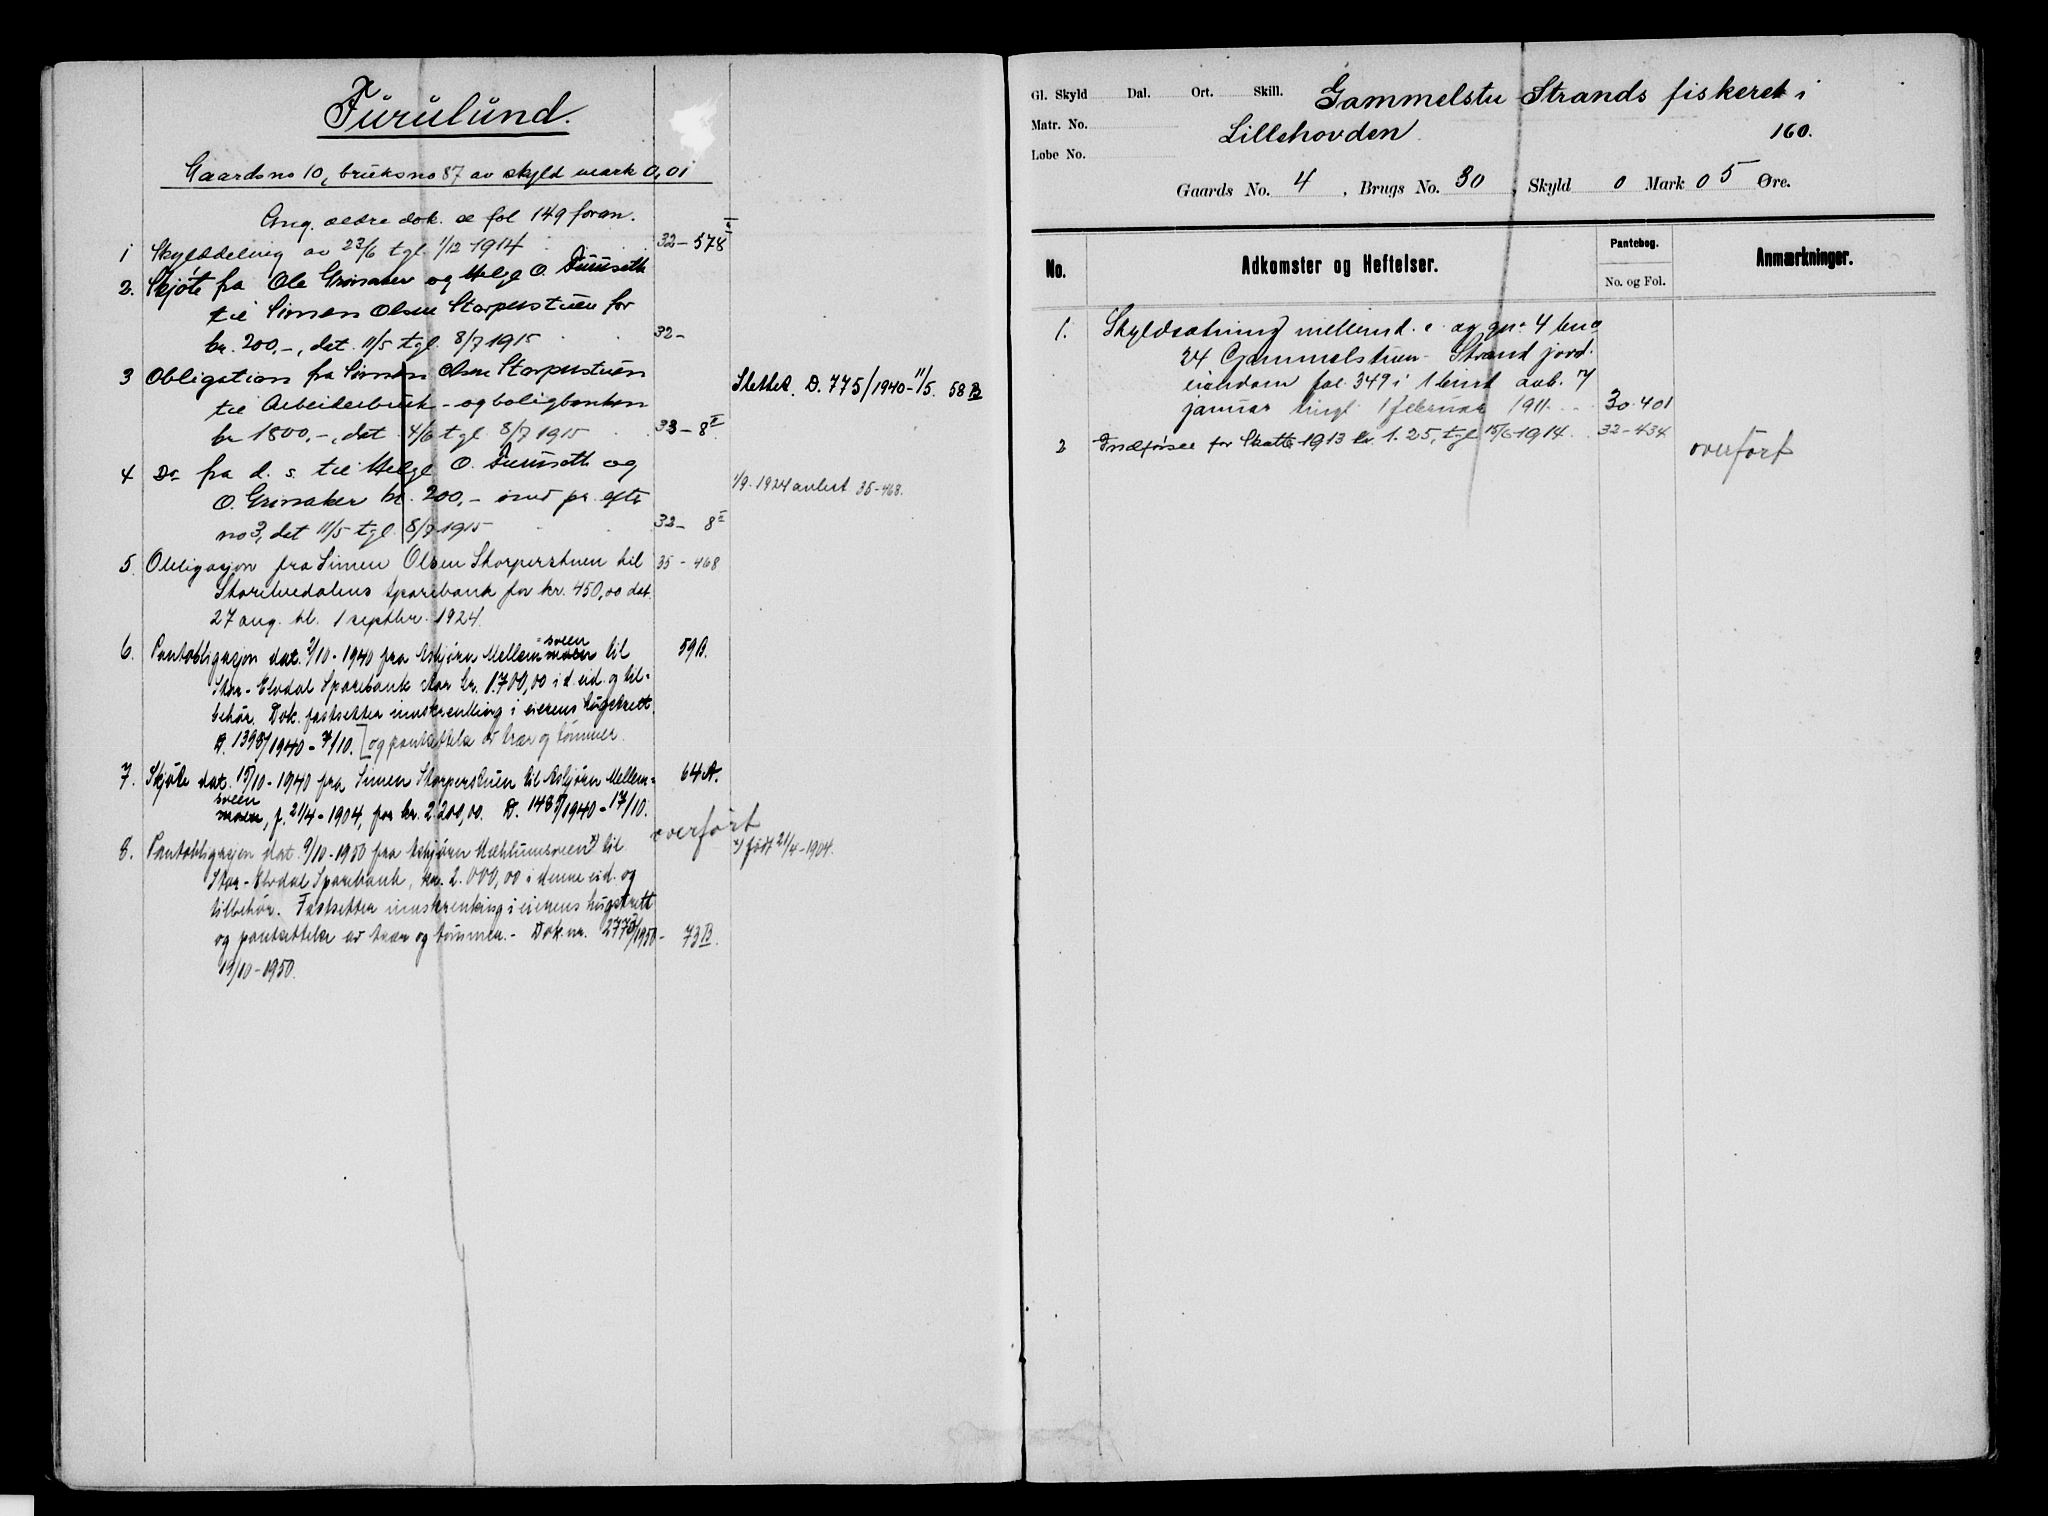 Furulund.
Gaardsno 10, bruksno 87 av skyld mark 0,01
Ang. ældre dok. se fol 149 foran.
1 Skylddeling av 23/6 tgl. 1/12 1914 32-578 I
2. Skjøte fra Ole Grinaker og Helge O. Furuseth
til Simen Olsen Storperstuen for
kr. 200,-, dat. 11/5 tgl. 8/7 1915 32-
3 Obligation fra Simen Olsen Storperstuen
til Arbeiderbruk- og boligbanken
kr 1800,-, dat 4/6 tgl. 8/7 1915 33-8 I
Slettet. D. 775/1940-11/5. 58 B
4 Do fra d. s. til Helge O. Furuseth og
O. Grinaker kr. 200,- med pr. efter
no 3, dat 11/5 tgl. 8/7 1915 32-8 II
1/9. 1924 avlest 35-468.
5. Obligasjon fra Simen Olsen Storperstuen til 35-468
Storelvedalens sparebank for kr. 450,00 dat.
27 aug. tl. 1 septbr. 1924.
6. Pantobligasjon dat. 2/10-1940 fra Asbjørn Mellem-moen til 59B.
sveen
Stor-Elvdal Sparebank stor kr. 1.700,00 i d. eid. og til-
behør. Dok. fastsetter innskrenkning i eierens hugstrett
D. 1398/1940-7/10. [og pantsettelse av trær og tømmer.
7. Skjøte dat. 15/10-1940 fra Simen Storperstuen til Asbjørn Mellem- 64A.
sveen
moen, f. 21/4-1904, for kr. 2.200,00. D. 1485/1940-17/10.
overført
8. Pantobligasjon dat. 9/10-1950 fra Asbjørn Mæhlumsveen x) til
x) født 21/4-1904.
Stor-Elvdal Sparebank, kr. 2.000,00 i denne eid. og
tilbehør. Fastsetter innskrenking i eierens hugstrett
og pantsettelse av trær og tømmer.- Dok.nr. 2773/1950- 73B.
19/10-1950.
Gl. Skyld Dal. Ort. Skill. Gammelstu-Strands fiskeret i
Matr. No. Lillehovden 160.
Løbe No.
Gaards No. 4, Brugs No. 30, Skyld 0 Mark 05 Øre.
No. Adkomster og Heftelser. Pantebog. Anmærkninger.
No. og Fol.
1. Skyldsætning mellem d. e. og gn. 4 bno
24 Gammelstuen-Strand jord-
eiendom fol. 349 i 1 bind avh. 7
januar tingl. 1 februar 1911. 30-401
2 Indførsel for Skatte 1913 kr. 1.25, tgl 15/6 1914. 32-434
overført